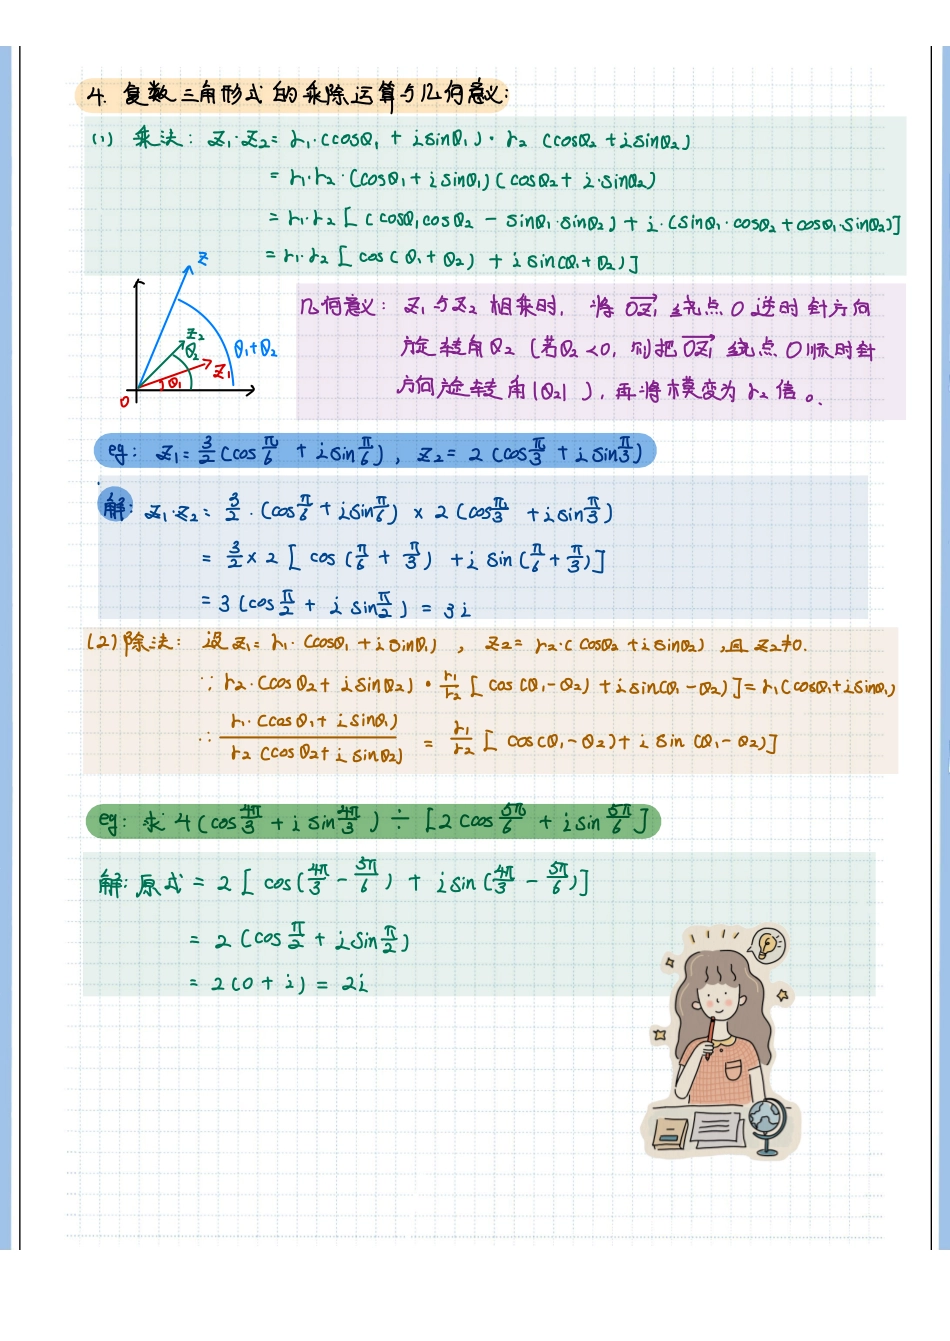 4. 复数三角形式的乘除运算与几何意义:
(1) 乘法: z₁·z₂= r₁·(cosθ₁ + isinθ₁)·r₂ (cosθ₂ + isinθ₂)
= r₁·r₂·(cosθ₁ + isinθ₁)(cosθ₂ + i·sinθ₂)
= r₁·r₂[(cosθ₁cosθ₂ - sinθ₁·sinθ₂) + i·(sinθ₁·cosθ₂ + cosθ₁·sinθ₂)]
= r₁·r₂[cos(θ₁+θ₂) + isin(θ₁+θ₂)]
z
z₂
θ₂
θ₁+θ₂
z₁
θ₁
O
几何意义: z₁与z₂相乘时, 将OZ₁→绕点O逆时针方向
旋转角θ₂ (若θ₂<0, 则把OZ₁→绕点O顺时针
方向旋转角|θ₂|), 再将模变为r₂倍。
eg: z₁= 3/2(cosπ/6 + isinπ/6), z₂= 2(cosπ/3 + isinπ/3)
解: z₁·z₂= 3/2·(cosπ/6 + isinπ/6) × 2(cosπ/3 + isinπ/3)
= 3/2×2[cos(π/6 + π/3) + isin(π/6 + π/3)]
= 3(cosπ/2 + isinπ/2) = 3i
(2) 除法: 设z₁= r₁·(cosθ₁ + isinθ₁), z₂= r₂·(cosθ₂ + isinθ₂),且z₂≠0.
∵ r₂·(cosθ₂ + isinθ₂)·r₁/r₂[cos(θ₁-θ₂) + isin(θ₁-θ₂)] = r₁(cosθ₁+isinθ₁)
∴ r₁·(cosθ₁ + isinθ₁)/r₂(cosθ₂ + isinθ₂) = r₁/r₂[cos(θ₁-θ₂) + isin(θ₁-θ₂)]
eg: 求4(cos4π/3 + isin4π/3) ÷ [2cos5π/6 + isin5π/6]
解: 原式 = 2[cos(4π/3 - 5π/6) + isin(4π/3 - 5π/6)]
= 2(cosπ/2 + isinπ/2)
= 2(0 + i) = 2i